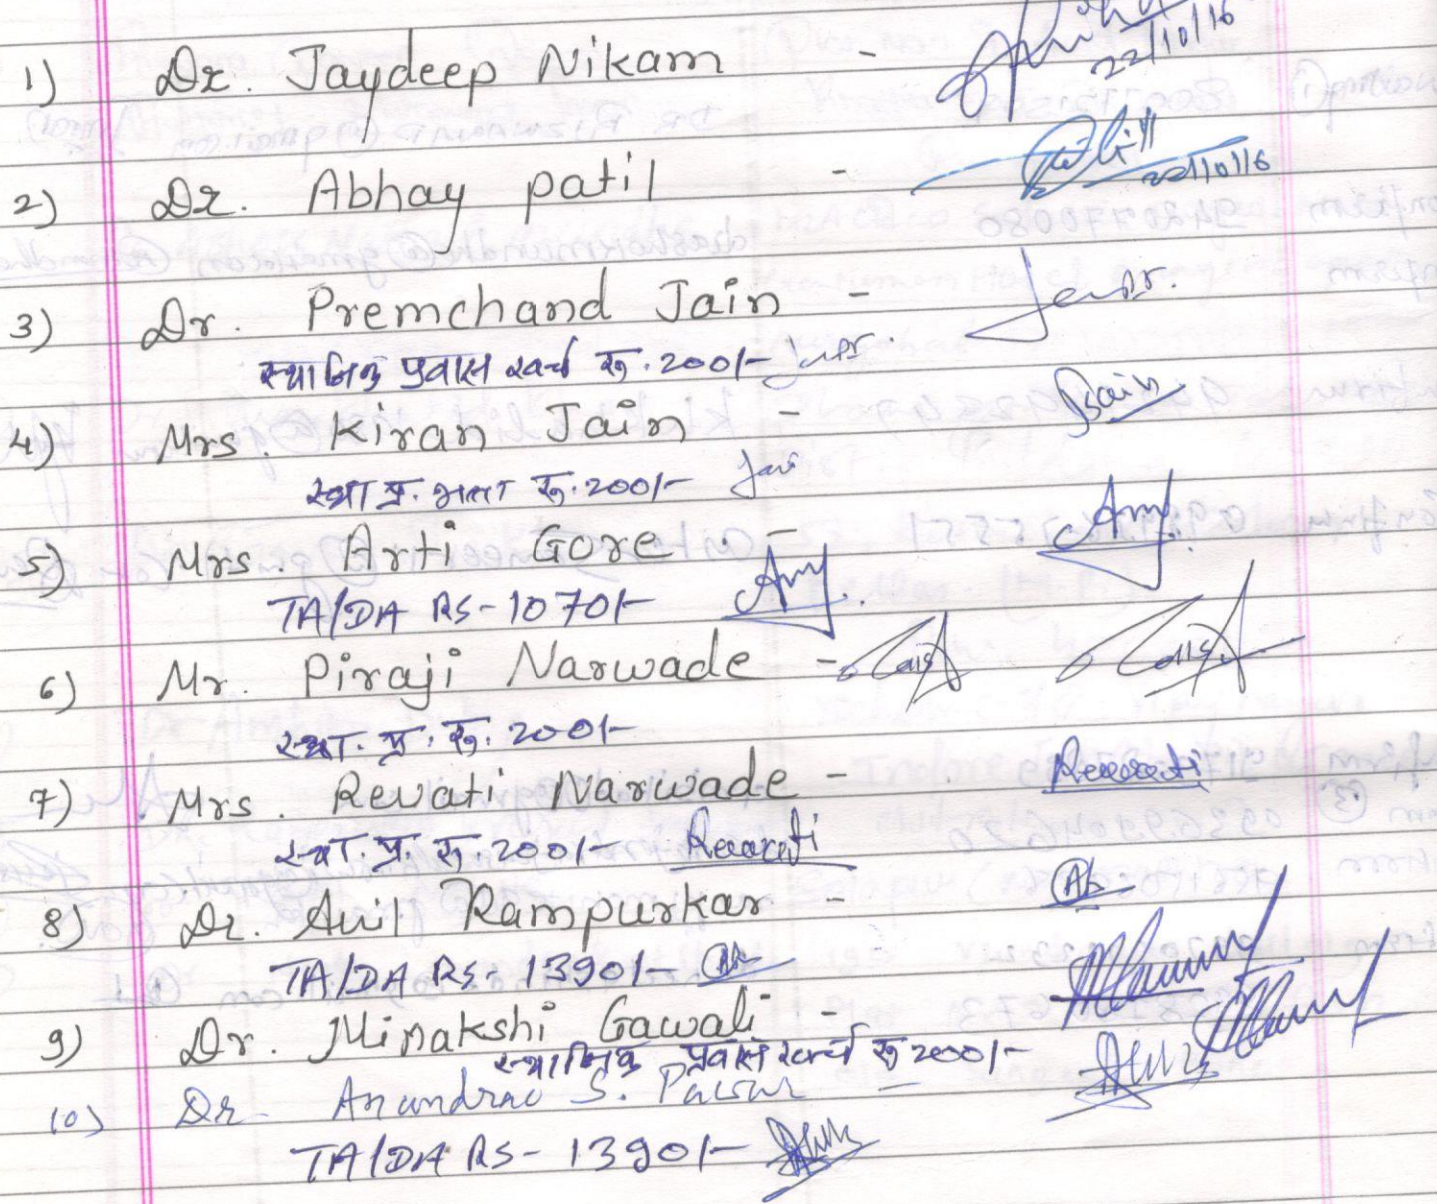 1) Dr. Jaydeep Nikam -
22/10/16
2) Dr. Abhay patil -
22/10/16
3) Dr. Premchand Jain -
स्थानिक प्रवास खर्च रु. 200/-
4) Mrs. Kiran Jain -
स्था प्र. भत्ता रु. 200/-
5) Mrs. Arti Gore -
TA/DA RS - 1070/-
6) Mr. Piraji Narwade -
स्था. प्र. रु. 200/-
7) Mrs. Revati Narwade - Revati
स्था प्र. रु. 200/- Revati
8) Dr. Anil Rampurkar -
TA/DA RS - 1390/-
9) Dr. Minakshi Gawali -
स्थानिक प्रवास खर्च रु 200/-
10) Dr Anandrao S. Pawar
TA/DA RS - 1390/-